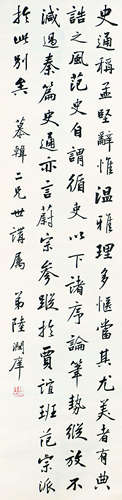 史通稱孟堅辭惟溫雅理多愜當其尤美者有典
誥之風范史自謂循史以下諸序論筆勢縱放不
減過秦篇史通亦言蔚宗參蹤於賈誼班范宗派
於此別矣
蓁輯二兄世講屬 弟陸潤庠